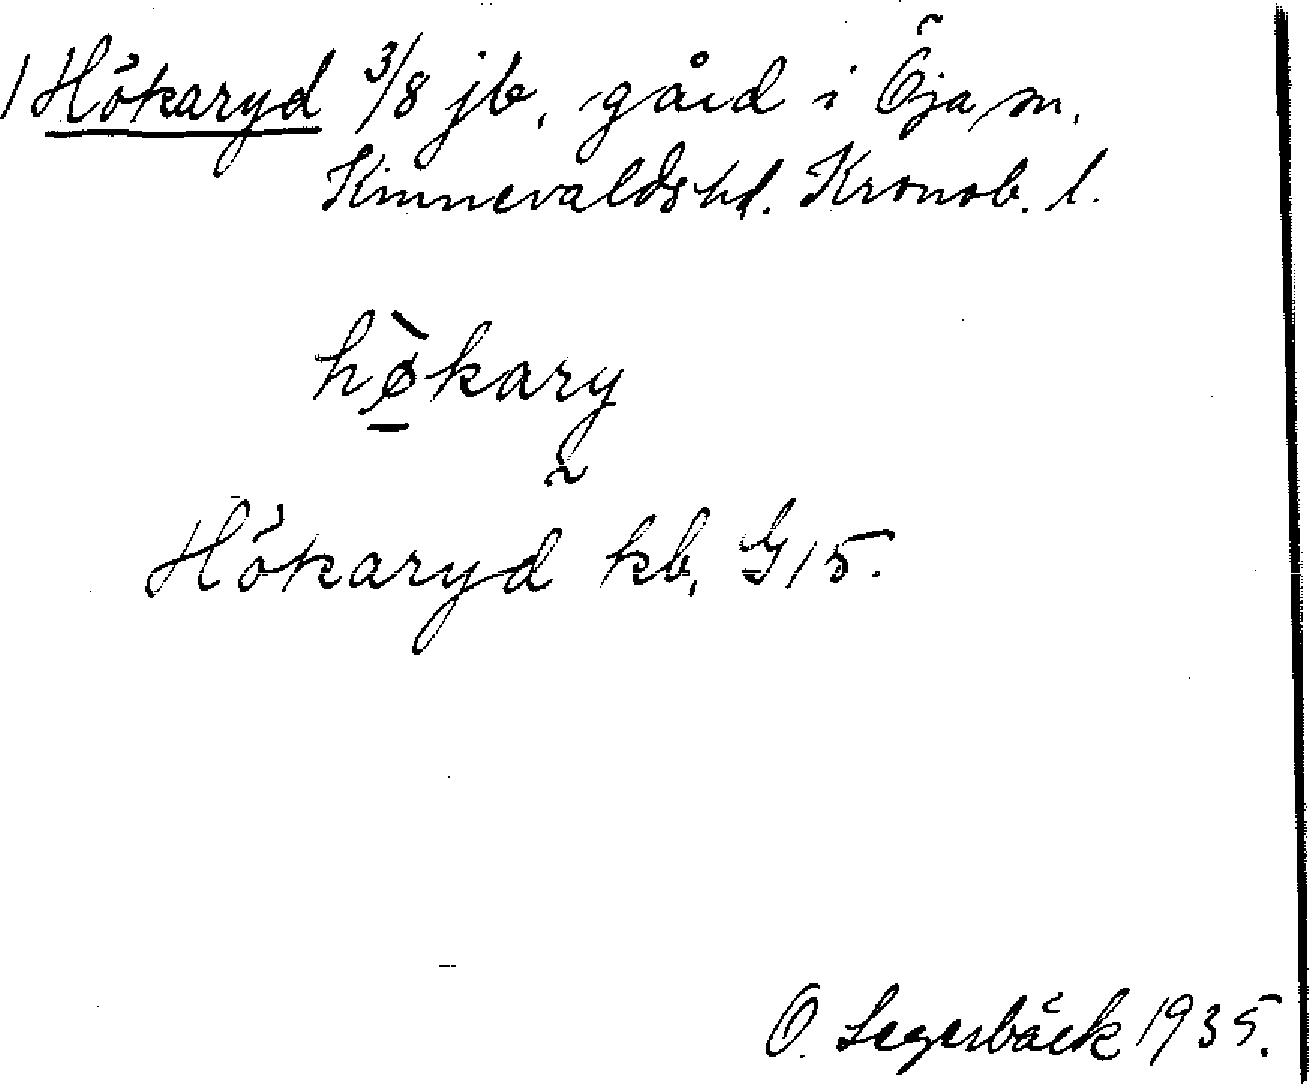 1 Hökaryd 3/8 jb, gård i Öja sn.
Kinnevalds hd. Kronob. l.
hø̠̀kary̰
Hökaryd kb, G15.
O. Segerbäck 1935.